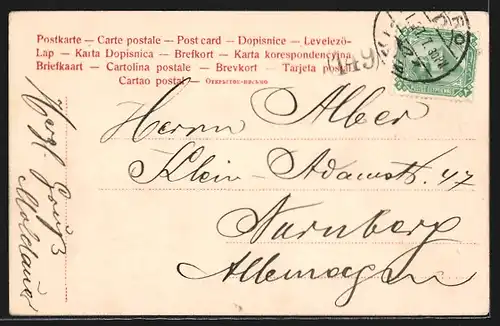 Postkarte — Carte postale — Post card — Dopisnice — Levelező-
Lap — Karta Dopisnica — Brefkort — Karta korespondencyjna
Briefkaart — Cartolina postale — Brevkort — Tarjeta postal
Cartao postal — Открытое письмо
149
Herrn Alber
Klein-Adamstr. 47
Nürnberg
Allemagen
Herzl. Gruß
Moldauer